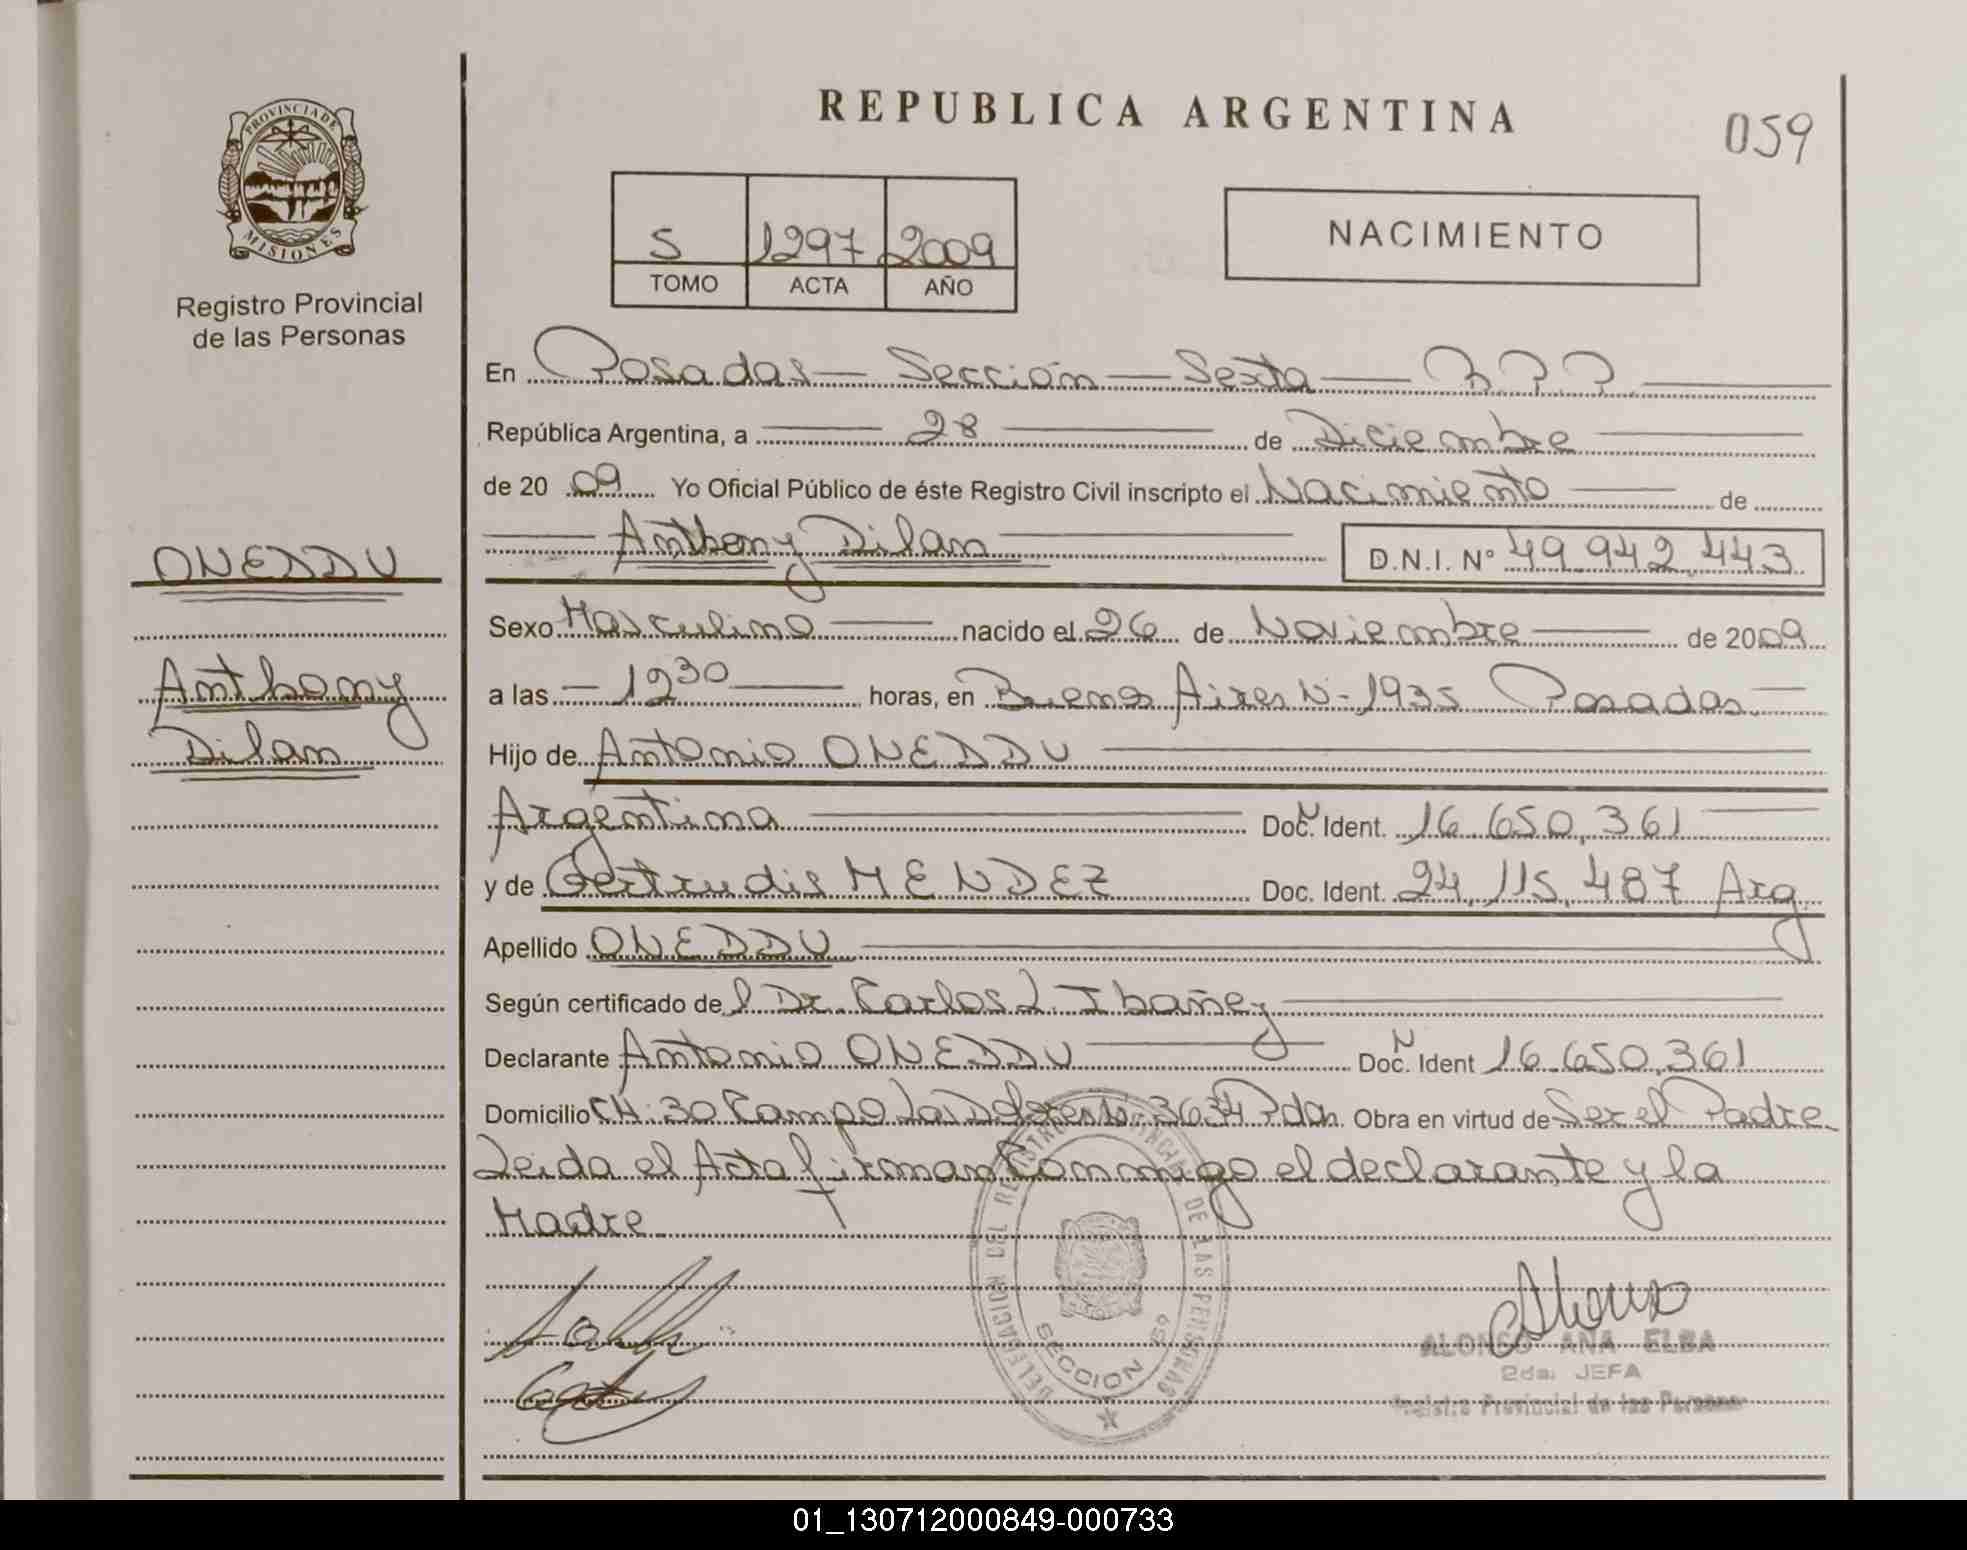 REPUBLICA ARGENTINA
059
PROVINCIA DE
MISIONES
Registro Provincial
de las Personas
S 1297 2009
TOMO ACTA AÑO
NACIMIENTO
En Posadas — Sección — Sexta — R.P.P.
República Argentina, a 28 de Diciembre
de 2009 Yo Oficial Público de éste Registro Civil inscripto el Nacimiento de
Anthony Dilan D.N.I. N° 49.942.443
ONEDDU
Anthony
Dilan
Sexo Masculino nacido el 26 de Noviembre de 2009
a las 12 30 horas, en Buenos Aires N- 1935 Posadas
Hijo de Antonio ONEDDU
Argentina Doc. N Ident. 16.650.361
y de Gertrudis MENDEZ Doc. Ident. 24.115.487 Arg.
Apellido ONEDDU
Según certificado del Dr. Carlos L. Ibañez
Declarante Antonio ONEDDU Doc. N Ident 16.650.361
Domicilio CH: 30 Campo Las 3634 Pdas. Obra en virtud de Ser el Padre
Leida el Acta firman conmigo el declarante y la
Madre
DELEGACION DEL REGISTRO PROVINCIAL DE LAS PERSONAS
SECCION 6º
ALONSO ANA ELBA
2da. JEFA
Registro Provincial de las Personas
01_130712000849-000733